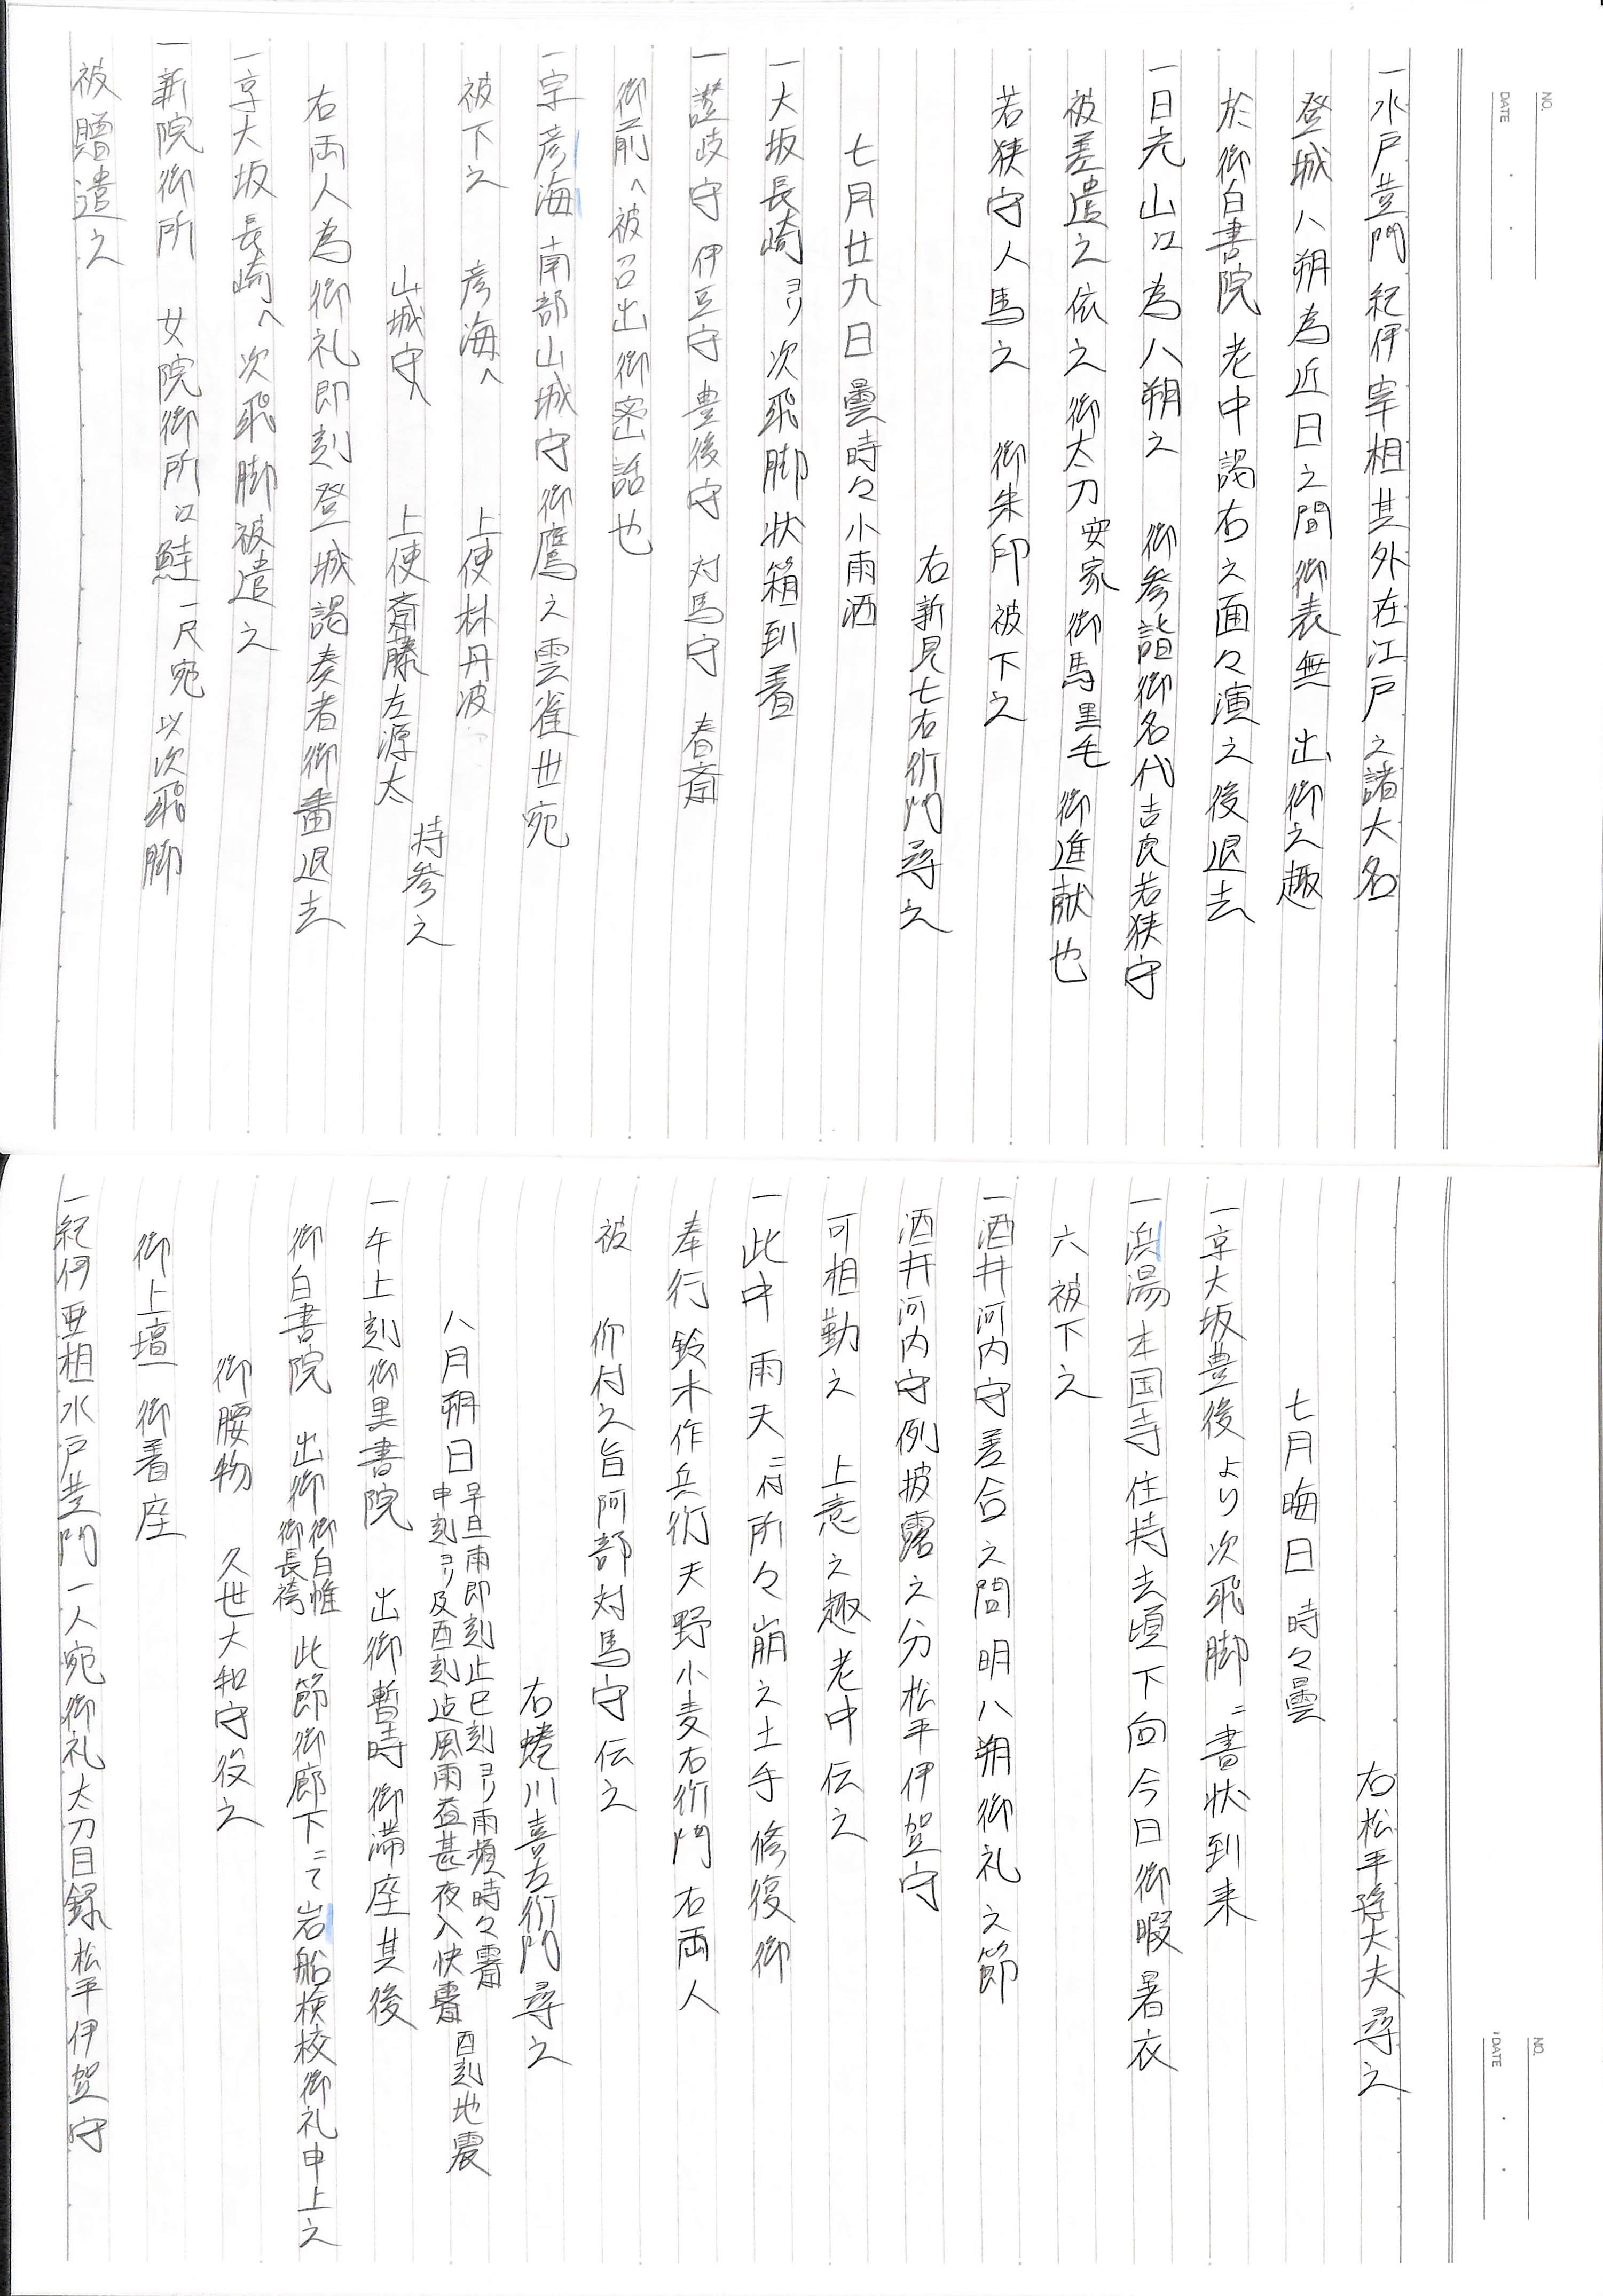 NO.
DATE
一水戸黄門 紀伊宰相其外在江戸之諸大名
登城八朔為近日之間御表無 出御之趣
於御白書院 老中謁右之面々演之後退去
一日光山江為八朔之 御参詣御名代吉良若狭守
被差遣之依之御太刀安家御馬黒毛御進献也
若狭守人馬之 御朱印被下之
右新見七右衛門尋之
七月廿九日曇時々小雨洒
一大坂長崎ヨリ次飛脚状箱到着
一讃岐守 伊豆守 豊後守 対馬守 春斎
御前へ被召出御密話也
一宗彦海 南部山城守御鷹之雲雀卅宛
被下之 彦海へ 上使林丹波
山城守へ 上使斎藤左源太
持参之
右両人為御礼即刻登城謁奏者御番退去
一京大坂長崎へ次飛脚被遣之
一新院御所 女院御所江鮭一尺宛以次飛脚
被贈遣之
NO.
DATE
右松平隼大夫尋之
七月晦日 時々曇
一京大坂豊後より次飛脚ニ書状到来
一浜湯本国寺住持去頃下向今日御暇暑衣
六被下之
一酒井河内守差合之間明八朔御礼之節
酒井河内守例披露之分松平伊賀守
可相勤之 上意之趣老中伝之
一此中雨天ニ付所々崩之土手修復御
奉行鈴木作兵衛天野小麦右衛門右両人
被 仰付之旨阿部対馬守伝之
右蜷川喜左衛門尋之
八月朔日早旦雨即刻止巳刻ヨリ雨頻時々霽
申刻ヨリ及酉刻迄風雨益甚夜入快霽 酉刻地震
一午上刻御黒書院 出御暫時御滞座其後
御白書院 出御御白帷御長袴此節御廊下ニて岩船検校御礼申上之
御腰物 久世大和守役之
御上壇 御着座
一紀伊亜相水戸黄門一人宛御礼太刀目録松平伊賀守